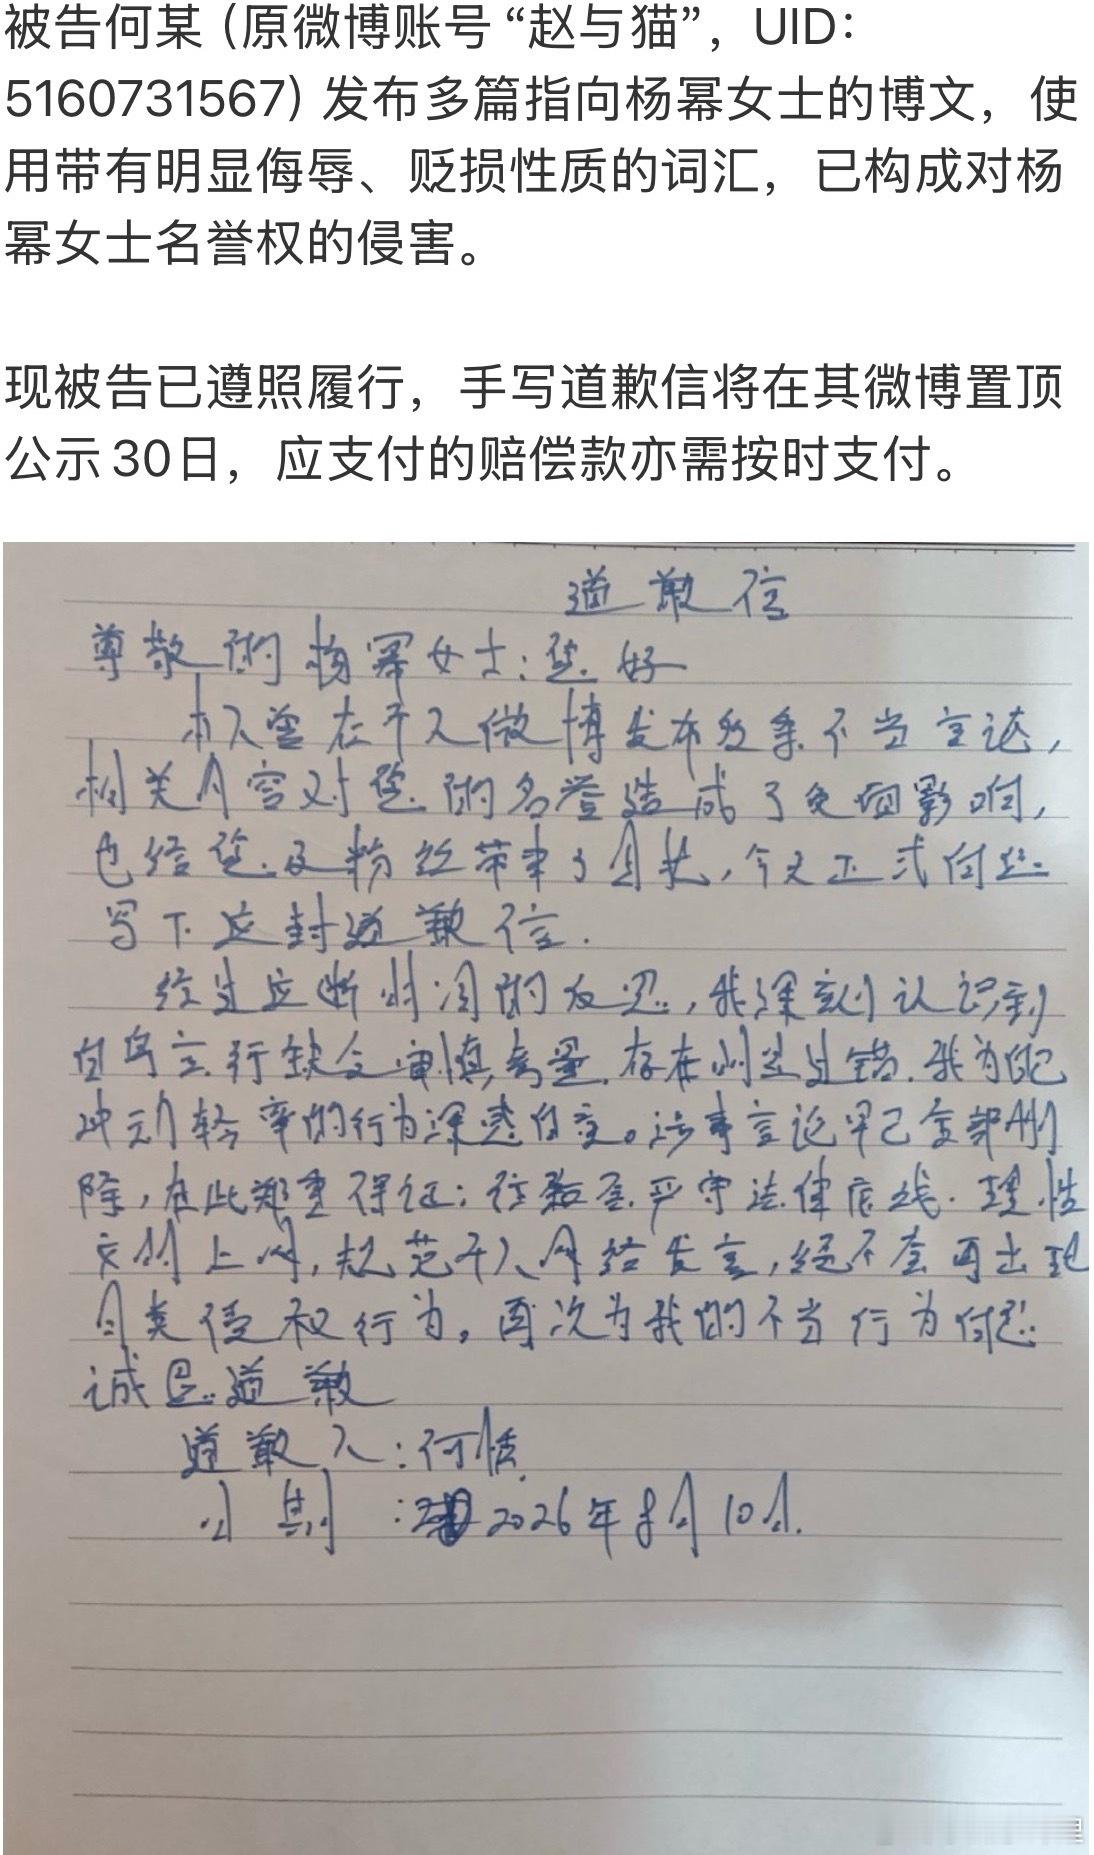 被告何某（原微博账号“赵与猫”，UID：
5160731567）发布多篇指向杨幂女士的博文，使
用带有明显侮辱、贬损性质的词汇，已构成对杨
幂女士名誉权的侵害。
现被告已遵照履行，手写道歉信将在其微博置顶
公示30日，应支付的赔偿款亦需按时支付。
道歉信
尊敬的杨幂女士：您好
本人曾在个人微博发布多条不当言论，
相关内容对您的名誉造成了负面影响，
也给您及粉丝带来了困扰，今天正式向您
写下这封道歉信.
经过这断时间的反思，我深刻认识到
自身言行缺乏审慎考量，存在明显过错.我为自己
冲动轻率的行为深感自责。涉事言论早已全部删
除，在此郑重保证：往后严守法律底线.理性
文明上网，规范个人网络发言，绝不会再出现
同类侵权行为。再次为我的不当行为向您
诚恳道歉
道歉人：何恬
日期：2026年8月10日.